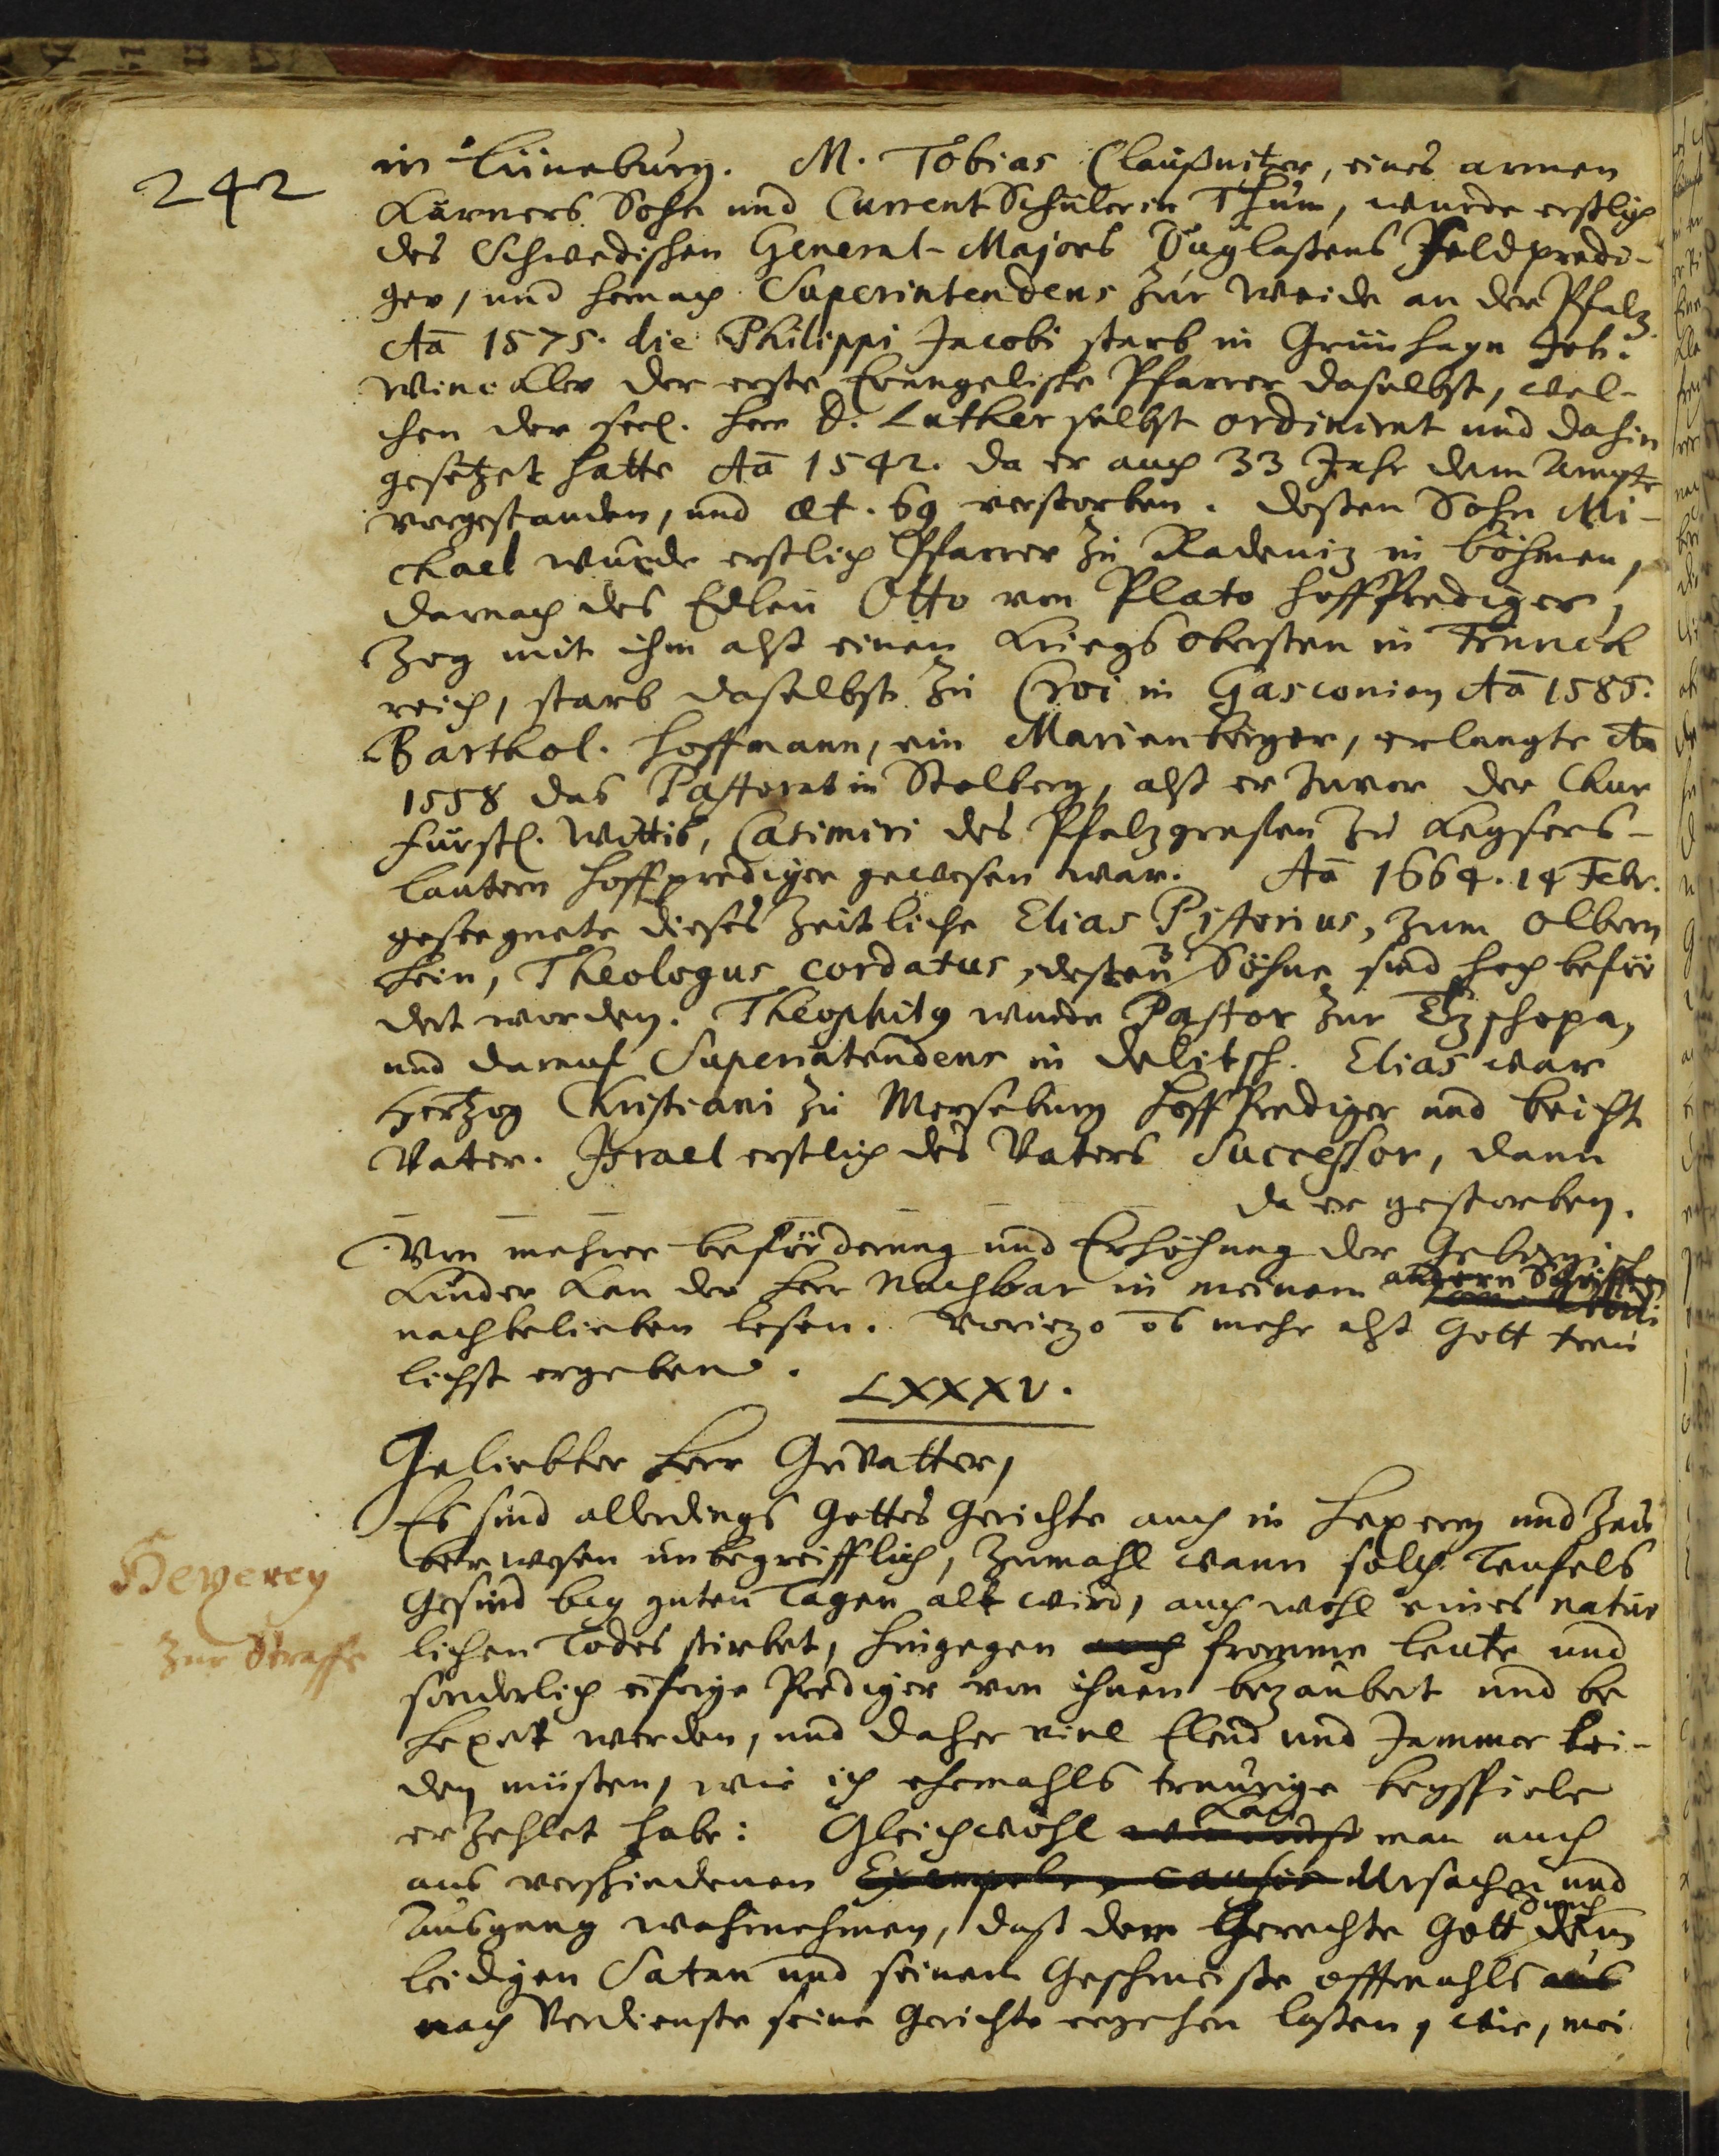 242
in Lüneburg. M. Tobias Claußnitzer, eines armen
Kärners Sohn und Current Schüler in Thum, wurde erstlich
des Schwedischen General-Majors Duglaßens Feldpredi-
ger, und hernach Superintendens zur Weide an der Pfalz.
Aõ 1575. die Philippi Jacobi starb in Grünhayn Joh.
der erste Evangelische Pfarrer daselbst, wel-
chen der seel. Herr D. Luther selbst ordinirat und dahin
gesetzet hatte Aõ 1542. da er auch 33 Jahr dem Ampte
vorgestanden, und æt. 69 verstorben. Deßen Sohn Mi-
chael wurde erstlich Pfarrer zu Radeniz in Böhmen,
darnach des Edlen Otto von Plato Hoffprediger,
zog mit ihm alß einen Kriegs Obersten in Franck
reich, starb daselbst zu Croi in Gasconien Aõ 1585.
Barthol. Hoffmann, ein Marienberger, erlangte Aõ
1558 das Pastorat in Stolberg, alß er zuvor der Chur
Fürstl. Wittib, Casimiri des Pfalzgrafen zu Keysers-
lautern Hoffprediger gewesen war. Aõ 1664. 14 Febr.
gesegnete dieses Zeitliche Elias Pistorius, zum Olbern
hein, Theologus cordatus, deßen 3 Söhne sind hoch beför
dert worden. Theophilg wurde Pastor zur Tzschopa,
und darauf Superintendens in Delitsch. Elias war
Hertzog Christiani zu Merseburg Hoff Prediger und Beicht
Vater. Israel erstlich des Vaters Successor, dann
– – – – – – da er gestorben.
Von mehrer Beförderung und Erhöhung der Gebirgisch
Kinder kan der Herr Nachbar in meinem andern Schrifften
nach belieben lesen. Voriezo õs mehr alß Gott treu
lichst ergebend.
LXXXV.
Geliebter Herr Gevatter,
Es sind allerdings Gottes Gerichte auch in Hexerey und Zau
berwesen unbegreifflich, zumahl wann solch Teufels
Gesind bey guten Tagen alt wird, auch wohl eines natür
lichen Todes stirbet, hingegen auch fromme Leute und
sonderlich eifrige Prediger von ihnen bezaubert und be
hexet werden, und daher viel Elend und Jammer lei-
den müßen, wie ich ehemahls traurige Beyspiele
erzehlet habe: Gleichwohl kan man auch
aus verschiedenen Exempeln causis Ursachen und
Ausgang wahrnehmen, daß der Gerechte Gott durch dem
leidigen Satan und seinem Geschmeiße offtmahls aus
nach Verdienste seine Gerichte ergehen laßen, wie, mei
Hexerey
zur Straffe